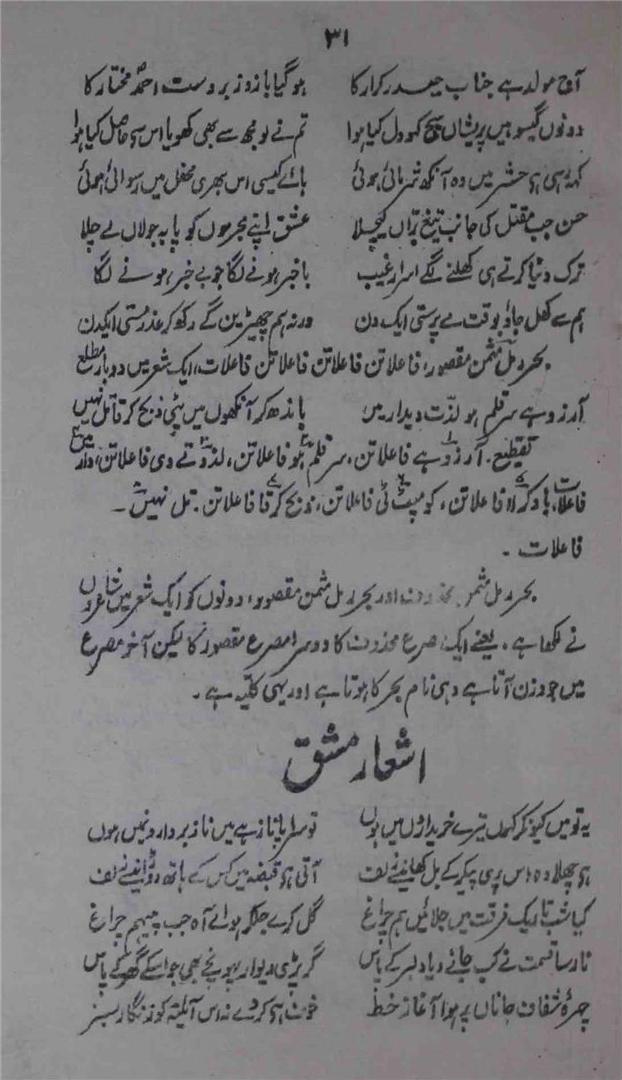 ۳۱
آج مولد ہے جناب حیدر کرار کا ہو گیا بازو زبردست احمدؐ مختار کا
دونوں گیسو ہیں پریشاں پیچ کھو دل کیا ہوا تم نے تو مجھ سے بھی کھویا اس سے حاصل کیا ہوا
کہہ رہی ہے حشر میں وہ آنکھ شرمائی ہوئی ہائے کیسی اس بھری محفل میں رسوائی ہوئی
حسن جب مقتل کی جانب تیغ براں لیچلا عشق اپنے مجرموں کو پا بہ جولاں لے چلا
ترک دنیا کرتے ہی کھلنے لگے اسرار غیب باخبر ہونے لگا جو بے خبر ہونے لگا
ہم سے کھل جاؤ بوقت مے پرستی ایک دن ورنہ ہم چھیڑیں گے رکھ کر عذر مستی ایکدن
بحر رمل مثمن مقصور، فاعلاتن فاعلاتن فاعلاتن فاعلات، ایک شعر میں دو بار مطلع
آرزو ہے سر قلم ہو لذت دیدار میں باندھ کر آنکھوں میں پٹی ذبح کر قاتل نہیں
تقطیع۔ آرزو ہے فاعلاتن، سر قلم ہو فاعلاتن، لذ تے دی فاعلاتن، دار میں
فاعلات، باد کرا فاعلاتن، کو مپٹ ٹی فاعلاتن، ذبح کر قا فاعلاتن۔ تل نہیں۔
فاعلات۔
بحر رمل مثمن محذوف اور بحر رمل مثمن مقصور، دونوں کو ایک شعر میں شاعروں
نے لکھا ہے۔ یعنے ایک مصرع محذوف کا دوسرا مصرع مقصور کا لیکن آخر مصرع
میں جو وزن آتا ہے وہی نام بحر کا ہوتا ہے اور یہی کلیہ ہے۔
اشعار مشق
یہ تو میں کیونکر کہوں تیرے خریداروں میں ہوں تو سراپا ناز ہے میں ناز بردارو نمیں ہوں
ہے چھلاوہ اس پری پیکر کے بل کھانیسے زلف آتی ہے قبضہ میں کس کے ہاتھ دوڑانیسے زلف
کیا شب تاریک فرقت میں جلائیں ہم چراغ گل کرے جھکر ہوائے آہ جب پیہم چراغ
نارسا قسمت نے کب جانے دیا دلبر کے پاس گر پڑی دیوار پہونچے بھی جو اسکے گھر کے پاس
چہرۂ شفاف جاناں پر ہوا آغاز خط خوف ہے کر دے نہ اس آئینہ کو زنگار سبز